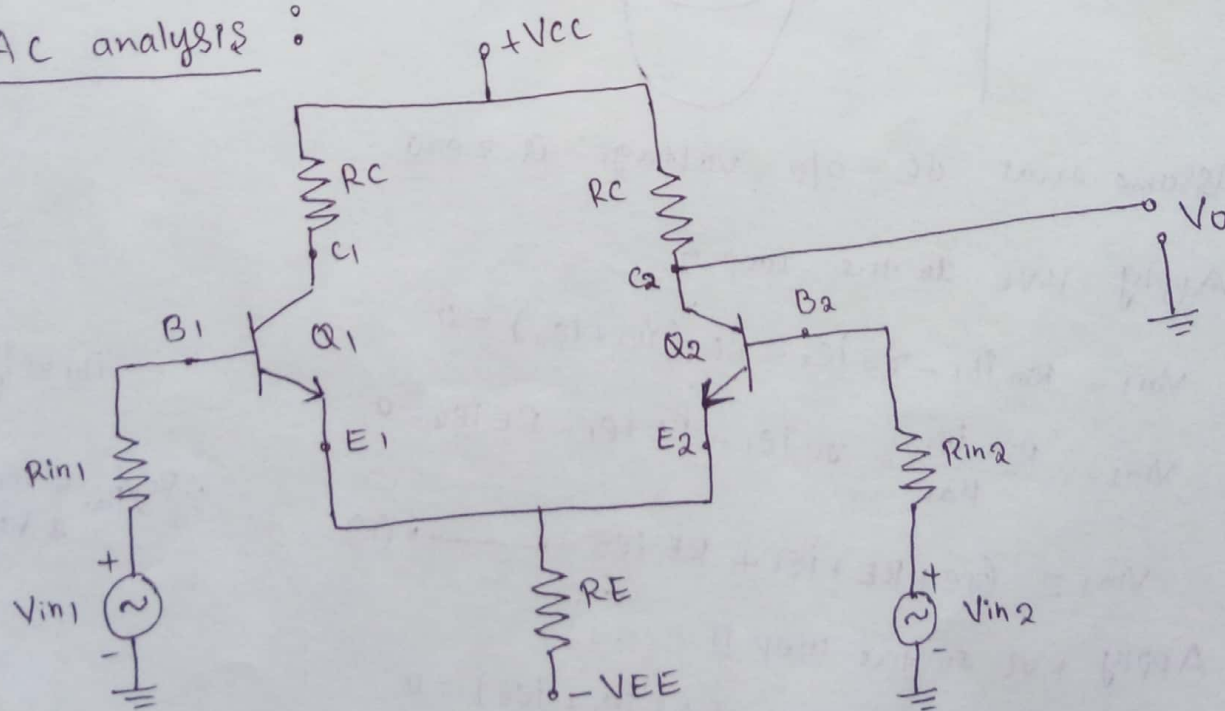 AC analysis :
+VCC
RC
RC
C1
C2
Vo
B1
Q1
Q2
B2
E1
E2
Rin1
Rin2
+
Vin1
-
RE
+
Vin2
-
-VEE